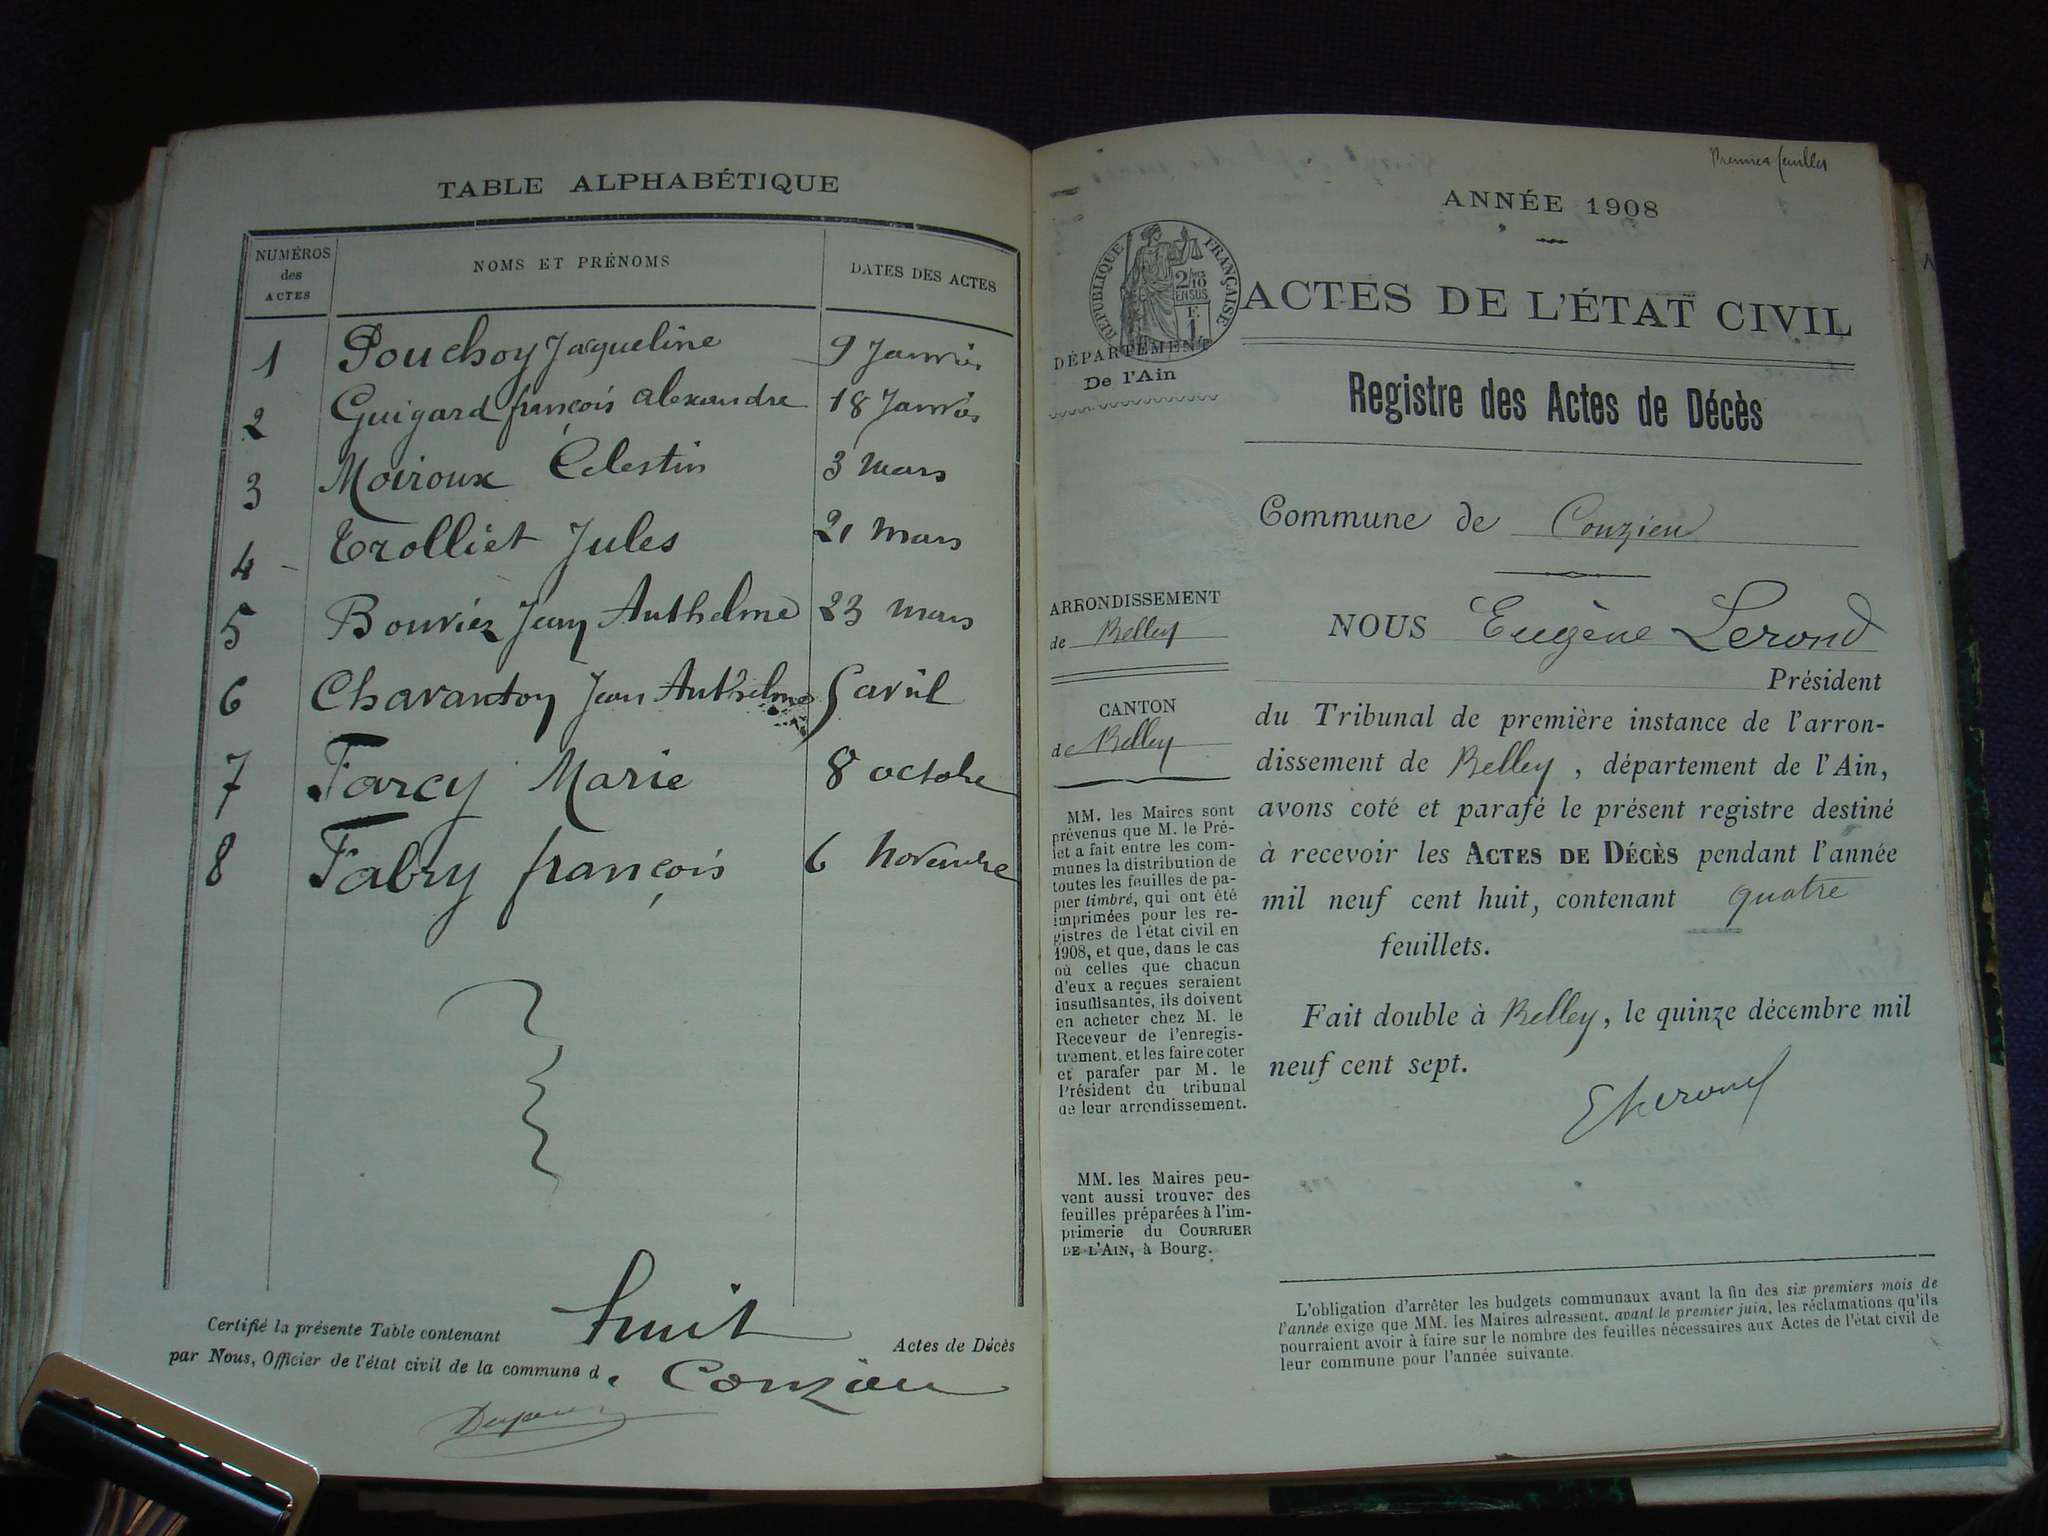 TABLE ALPHABÉTIQUE
NUMÉROS des ACTES
NOMS ET PRÉNOMS
DATES DES ACTES
1 Pouchoy Jacqueline 9 Janvier
2 Guigard françois alexandre 18 Janvier
3 Moiroux Célestin 3 mars
4 Trolliet Jules 21 mars
5 Bouvier Jean Anthelme 23 mars
6 Chavanton Jean Anthelme 5 avril
7 Farcy Marie 8 octobre
8 Fabry françois 6 Novembre
Certifié la présente Table contenant huit Actes de Décès
par Nous, Officier de l'état civil de la commune de Conzieu
Premier feuillet
ANNÉE 1908
RÉPUBLIQUE FRANÇAISE
2/10 EN SUS
F. 1
ACTES DE L'ÉTAT CIVIL
DÉPARTEMENT
De l'Ain
Registre des Actes de Décès
Commune de Conzieu
ARRONDISSEMENT
de Belley
CANTON
de Belley
MM. les Maires sont
prévenus que M. le Pré-
fet a fait entre les com-
munes la distribution de
toutes les feuilles de pa-
pier timbré, qui ont été
imprimées pour les re-
gistres de l'état civil en
1908, et que, dans le cas
où celles que chacun
d'eux a reçues seraient
insuffisantes, ils doivent
en acheter chez M. le
Receveur de l'enregis-
trement, et les faire coter
et parafer par M. le
Président du tribunal
de leur arrondissement.
MM. les Maires peu-
vent aussi trouver des
feuilles préparées à l'im-
primerie du COURRIER
DE L'AIN, à Bourg.
NOUS Eugène Lerond
Président
du Tribunal de première instance de l'arron-
dissement de Belley, département de l'Ain,
avons coté et parafé le présent registre destiné
à recevoir les ACTES DE DÉCÈS pendant l'année
mil neuf cent huit, contenant quatre
feuillets.
Fait double à Belley, le quinze décembre mil
neuf cent sept.
L'obligation d'arrêter les budgets communaux avant la fin des six premiers mois de
l'année exige que MM. les Maires adressent, avant le premier juin, les réclamations qu'ils
pourraient avoir à faire sur le nombre des feuilles nécessaires aux Actes de l'état civil de
leur commune pour l'année suivante.